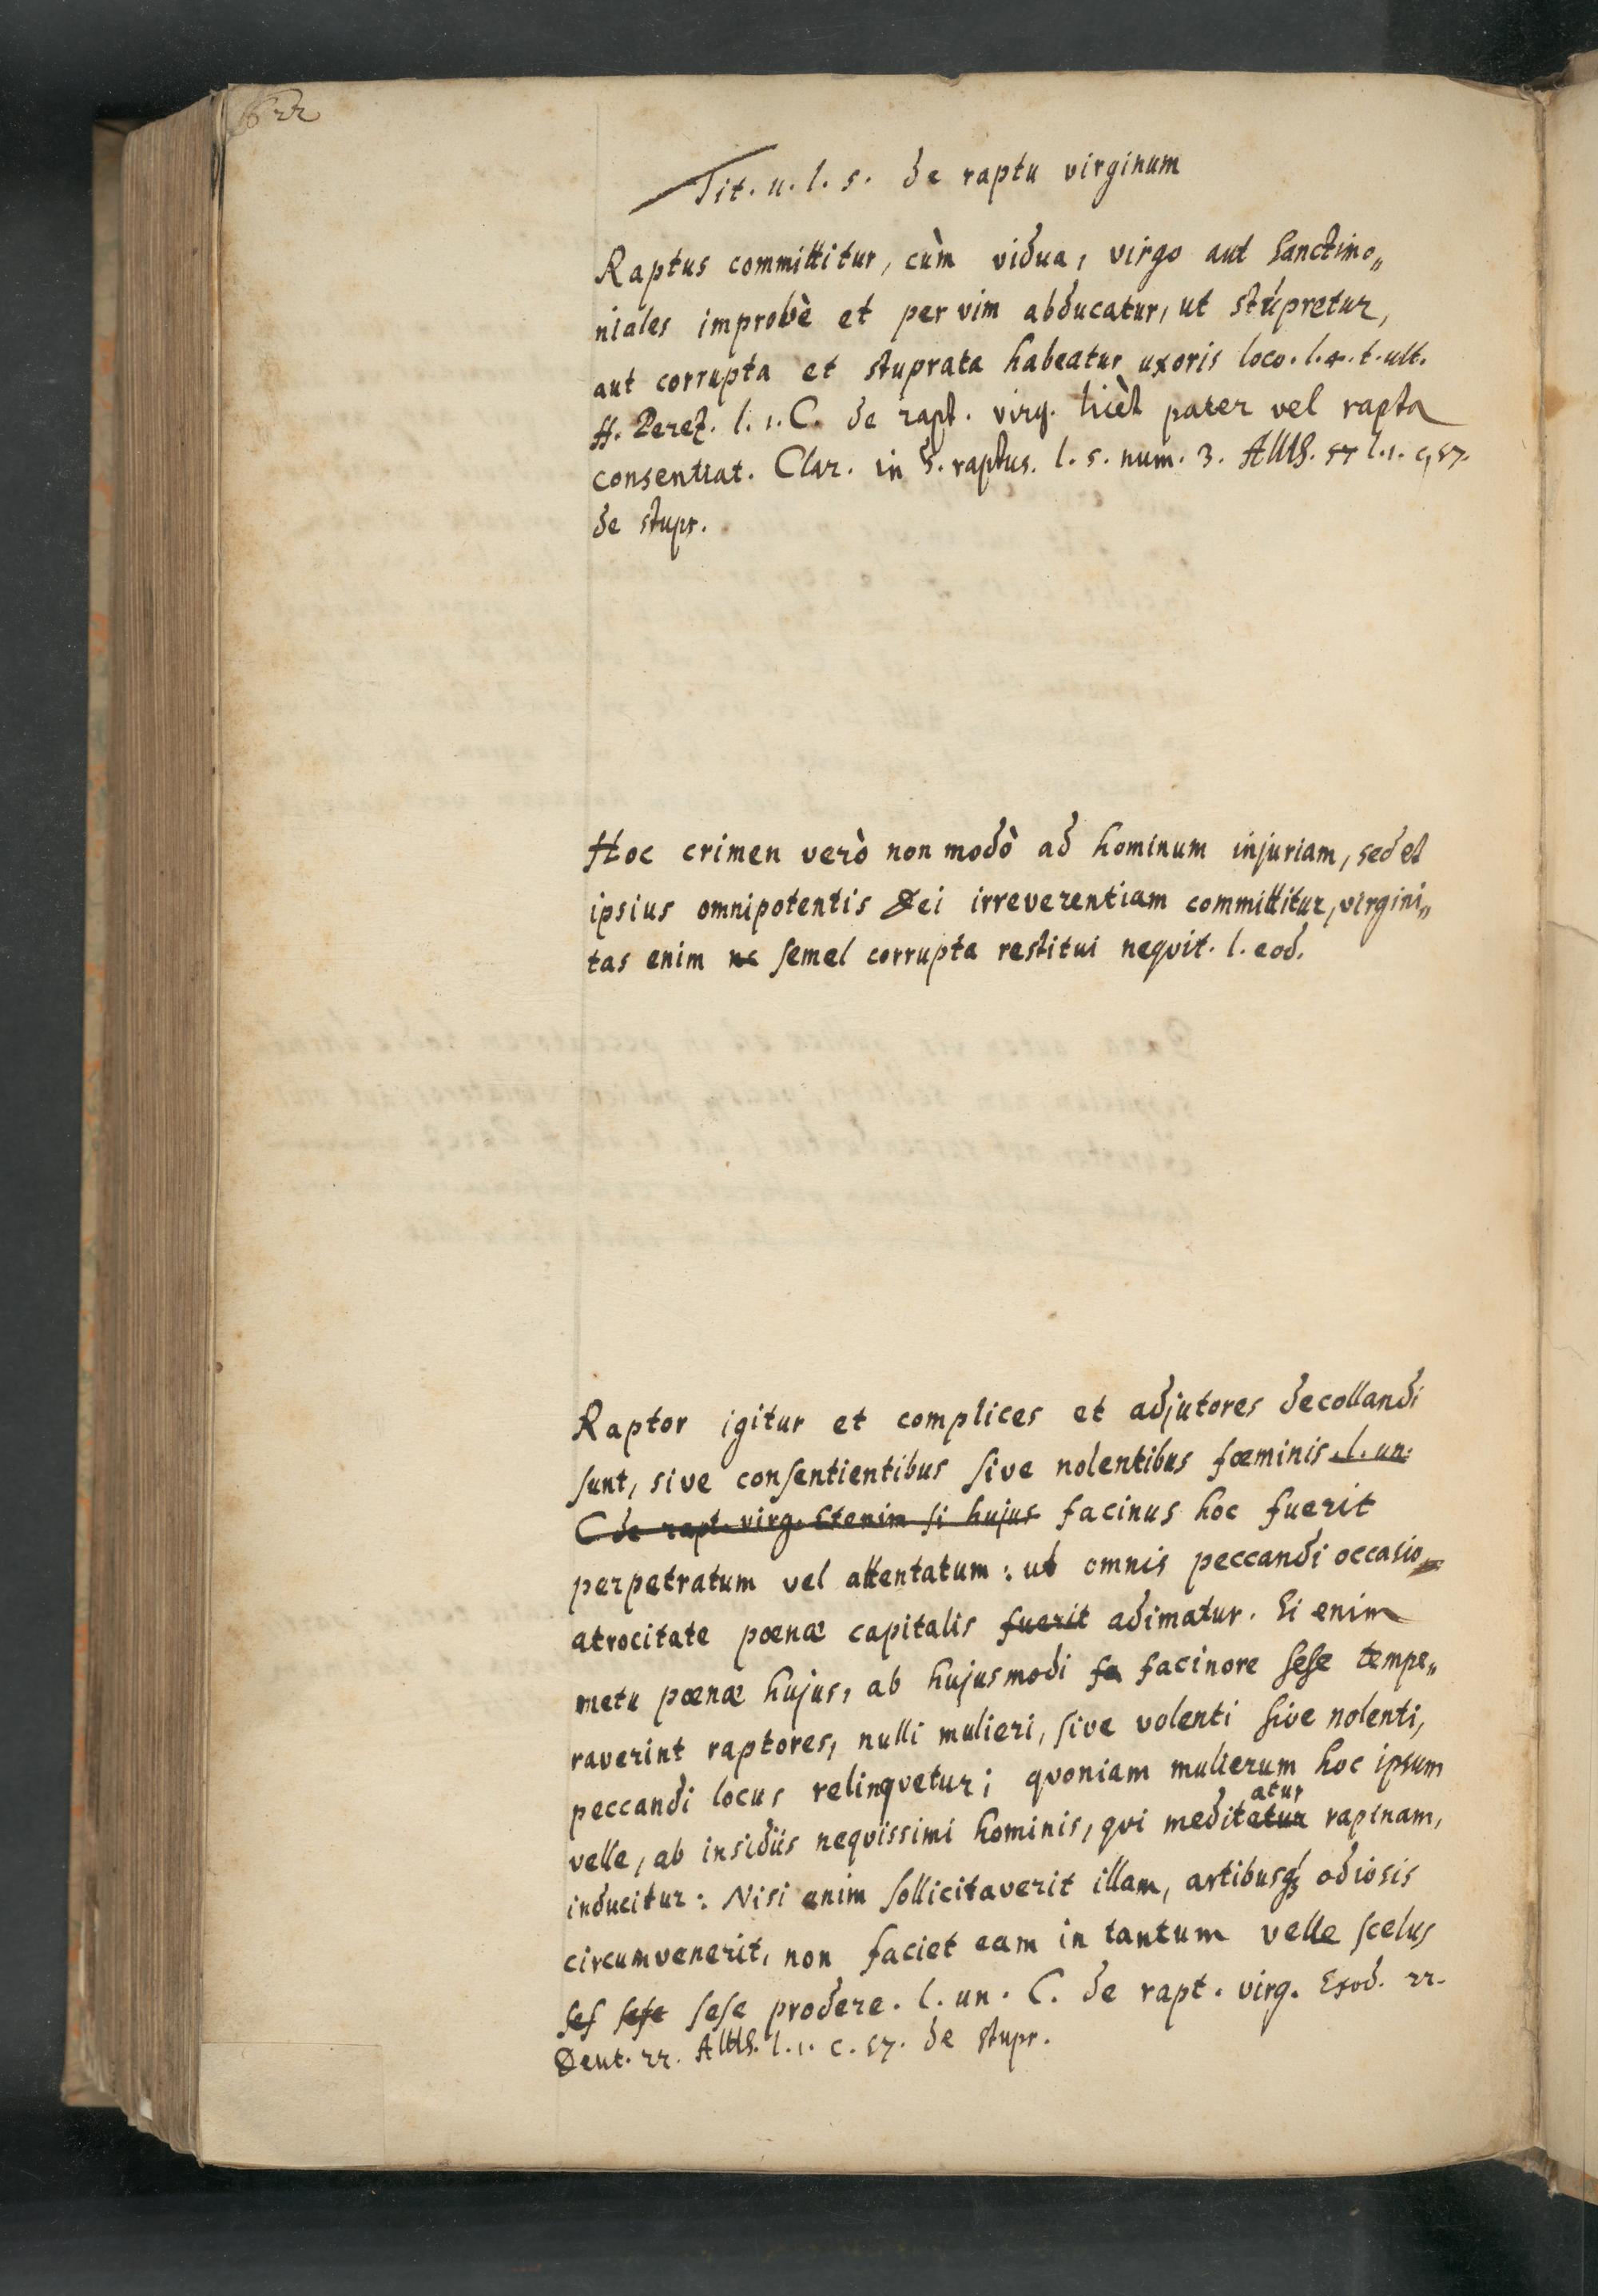 622
Tit. u. l. s. de raptu virginum
Raptus committitur, cùm vidua, virgo aut sanctimo„
niales improbè et per vim abducatur, ut stupretur,
aut corrupta et stuprata habeatur uxoris loco. l. 4. t. ult.
ff. Perez. l. 1. C. de rapt. virg. licèt pater vel rapta
consentiat. Clar. in §. raptus. l. 5. num. 3. l. 1. c, 57.
de stupr.
Hoc crimen verò non modò ad hominum injuriam, sed et
ipsius omnipotentis Dei irreverentiam committitur, virgini„
tas enim ne semel corrupta restitui neqvit. l. eod.
Raptor igitur et complices et adjutores decollandi
sunt, sive consentientibus sive nolentibus fœminis. l. un.
C de rapt. virg. Etenim si hujus facinus hoc fuerit
perpetratum vel attentatum: ut omnis peccandi occasio
atrocitate pœnæ capitalis fuerit adimatur. Si enim
metu pœnæ hujus, ab hujusmodi fa facinore sese tempe„
raverint raptores, nulli mulieri, sive volenti sive nolenti,
peccandi locus relinqvetur; qvoniam mulierum hoc ipsum
velle, ab insidiis neqvissimi hominis, qvi meditatur atur rapinam,
inducitur: Nisi enim sollicitaverit illam, artibusq; odiosis
circumvenerit, non faciet eam in tantum velle scelus
ses sese sese prodere. l. un. C. de rapt. virg. Exod. 22.
Deut. 22. l. 1. c. 57. de stupr.